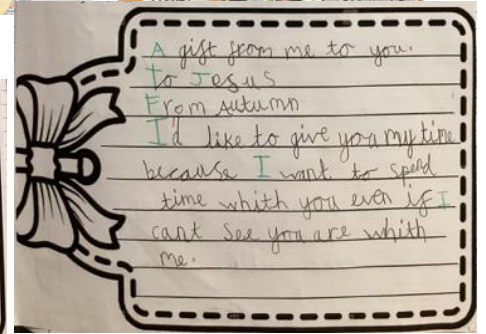 A gift from me to you.
to Jesus
From Autumn
I'd like to give you my time
because I want to spend
time whith you even if I
cant see you are whith
me.